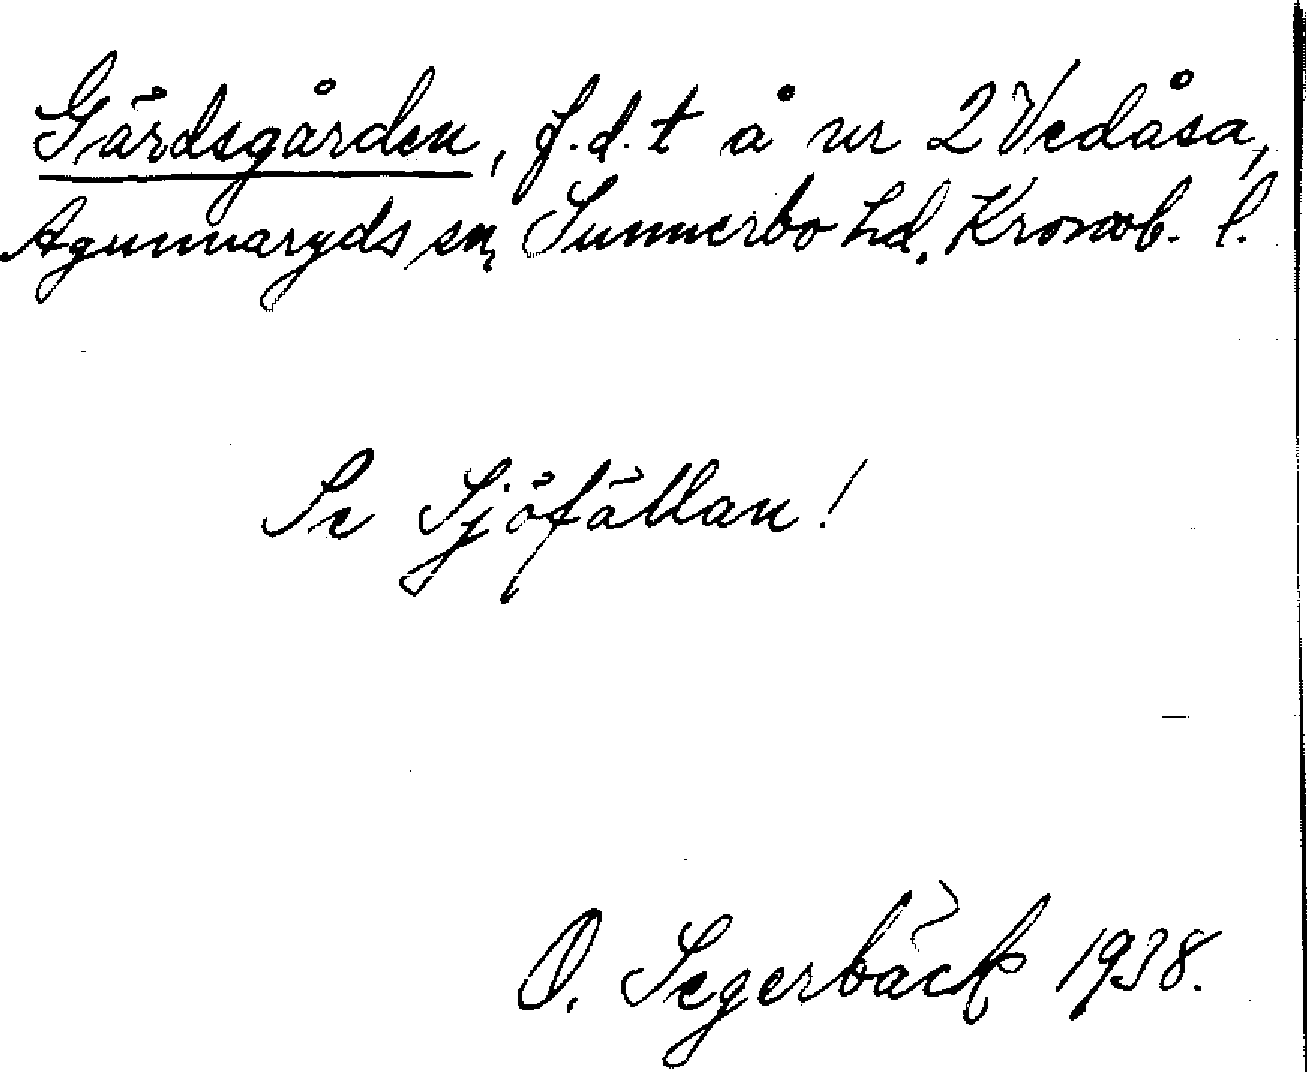 Gärdsgården, f.d.t å nr 2 Vedåsa,
Agunnaryds sn, Sunnerbo hd. Kronob. l.
Se Sjöfällan!
O. Segerbäck 1938.